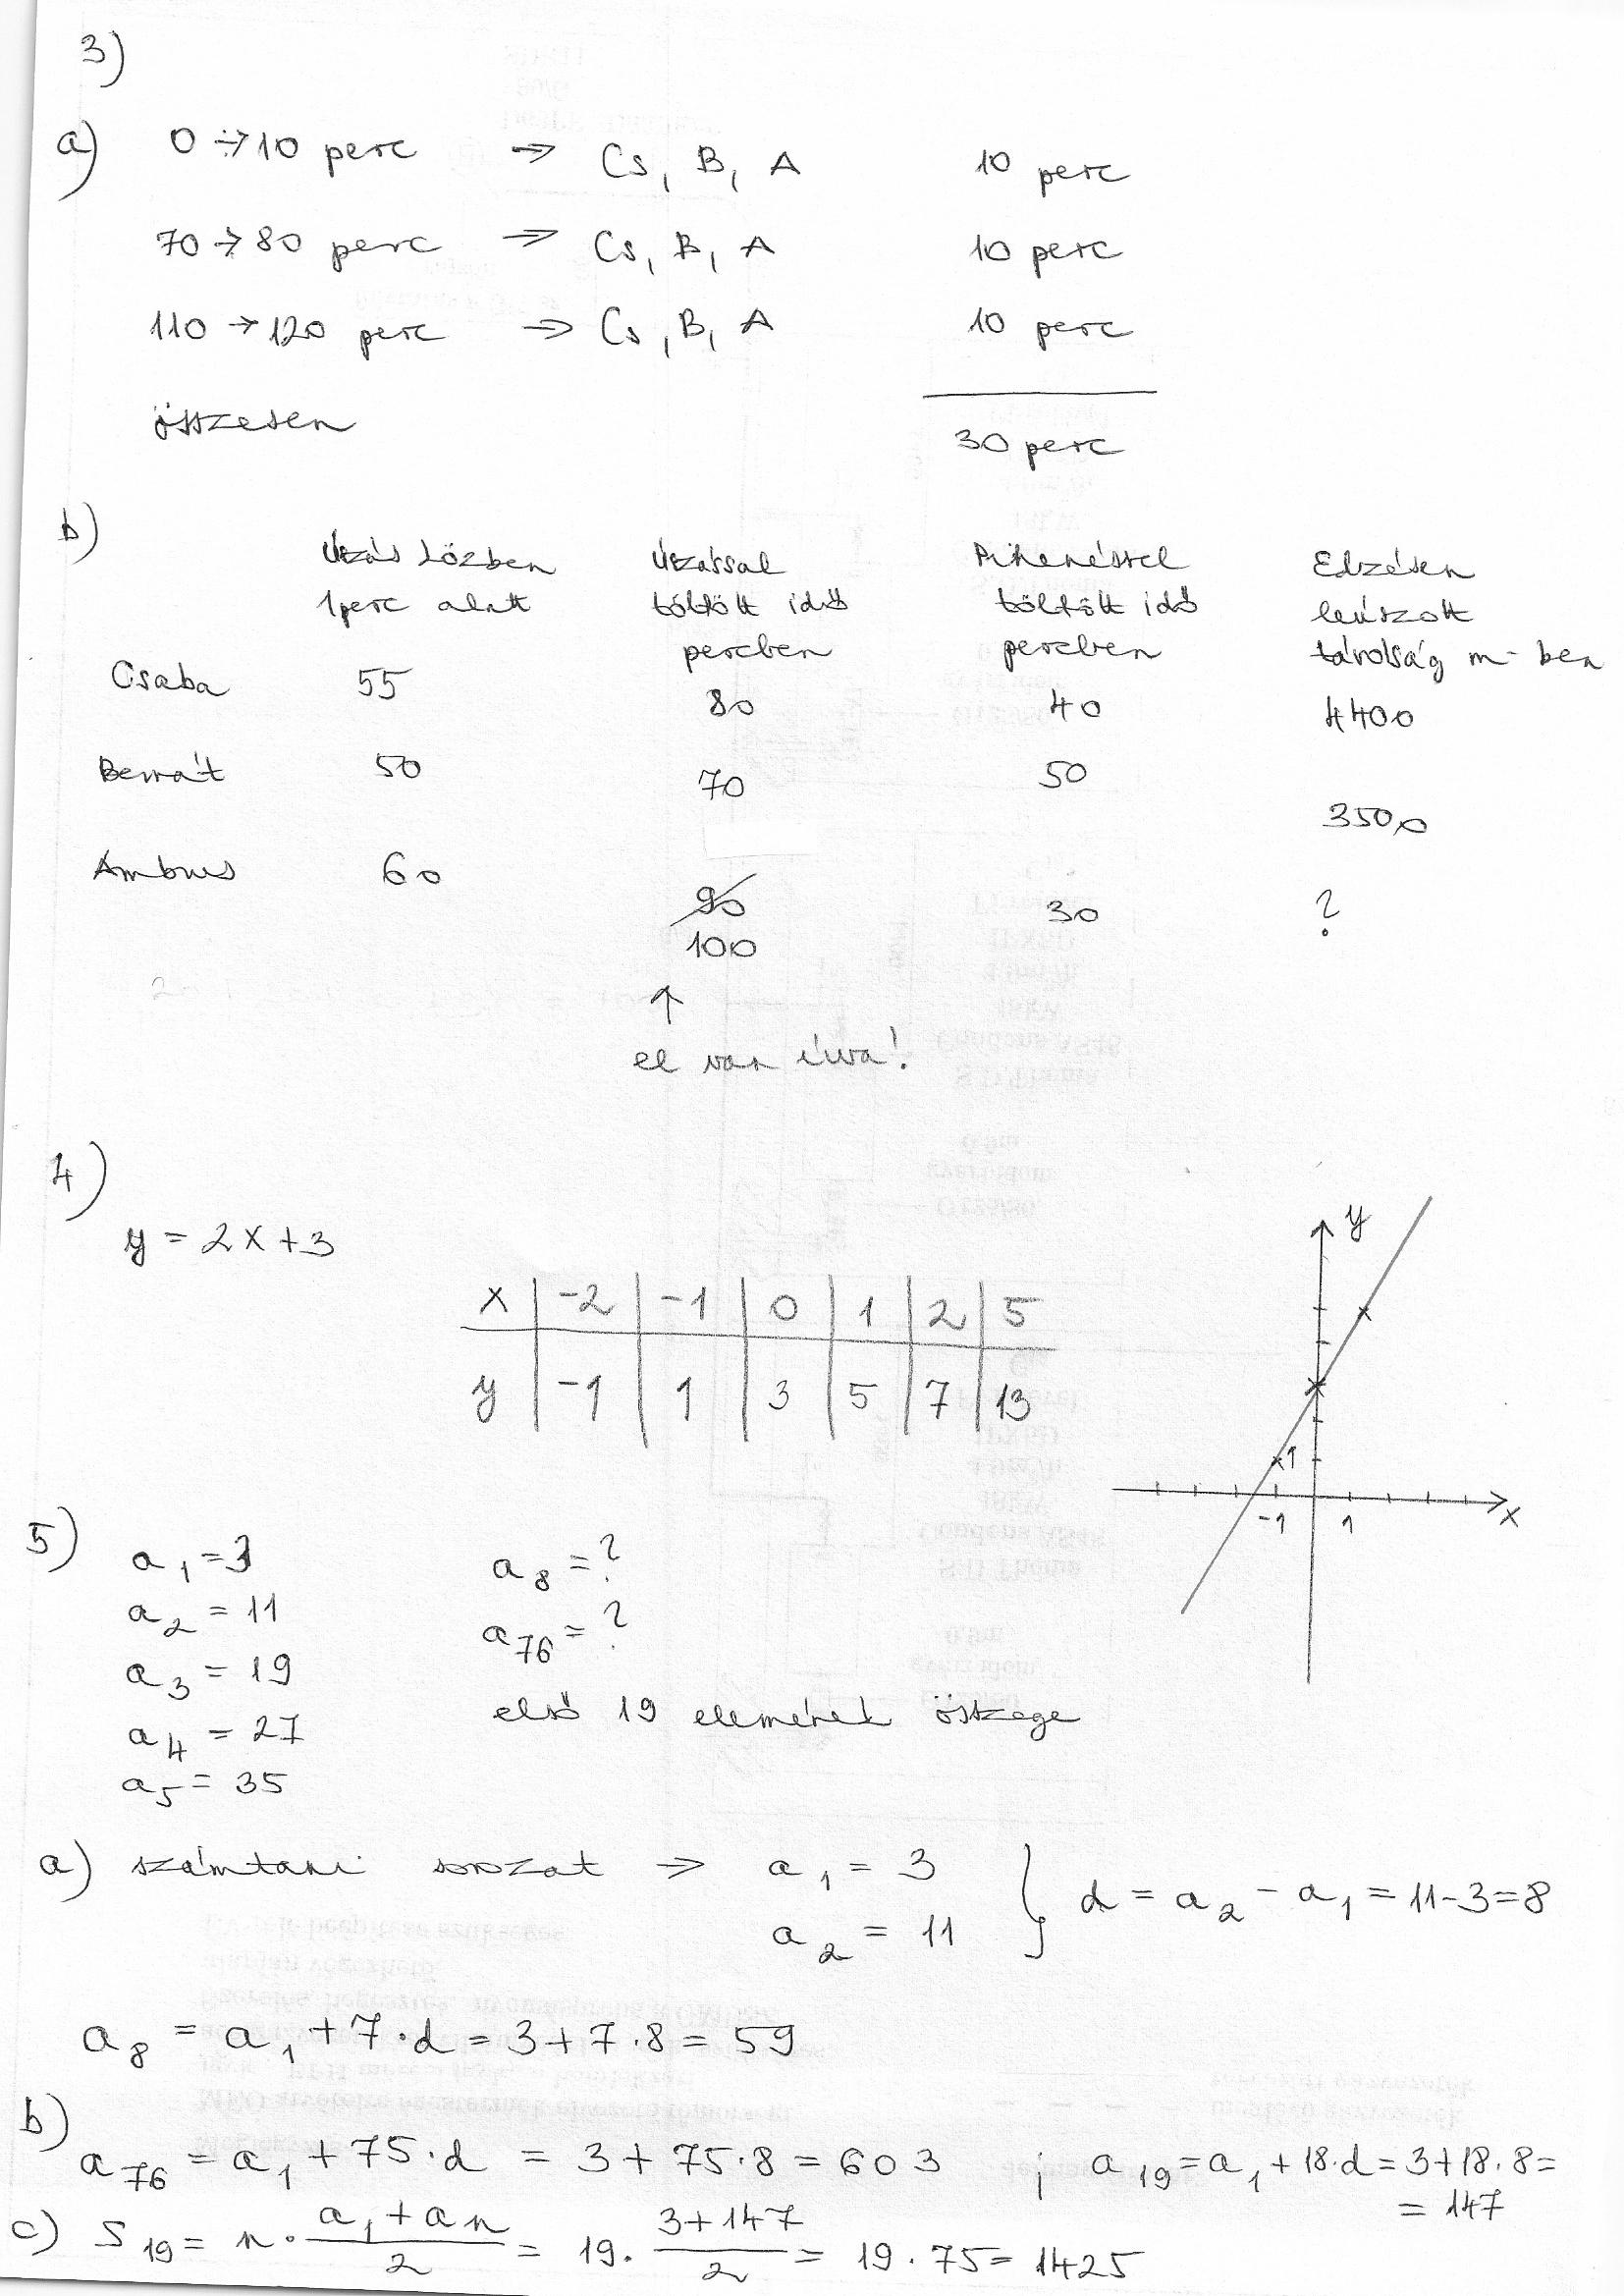 3)
a) 0 ÷> 10 perc => Cs, B, A 10 perc
70 ÷> 80 perc => Cs, B, A 10 perc
110 -> 120 perc => Cs, B, A 10 perc
összesen 30 perc
b)
Úszás közben 1 perc alatt
Úszással töltött idő percben
Pihenéssel töltött idő percben
Edzésen leúszott távolság m-ben
Csaba 55 80 40 4400
Bernát 50 70 50 3500
Ambrus 60 90 100 30 ?
↑
el van írva!
4)
y = 2x+3
x -2 -1 0 1 2 5
y -1 1 3 5 7 13
y
1
-1 1 x
5) a1 = 3 a8 = ?
a2 = 11 a76 = ?
a3 = 19 első 19 elemének összege
a4 = 27
a5 = 35
a) számtani sorozat => a1 = 3 } d = a2 - a1 = 11-3=8
a2 = 11
a8 = a1 + 7·d = 3+7·8 = 59
b) a76 = a1 + 75·d = 3+75·8 = 603 ; a19 = a1 + 18·d = 3+18·8 =
= 147
c) S19 = n · (a1 + an)/2 = 19 · (3+147)/2 = 19 · 75 = 1425